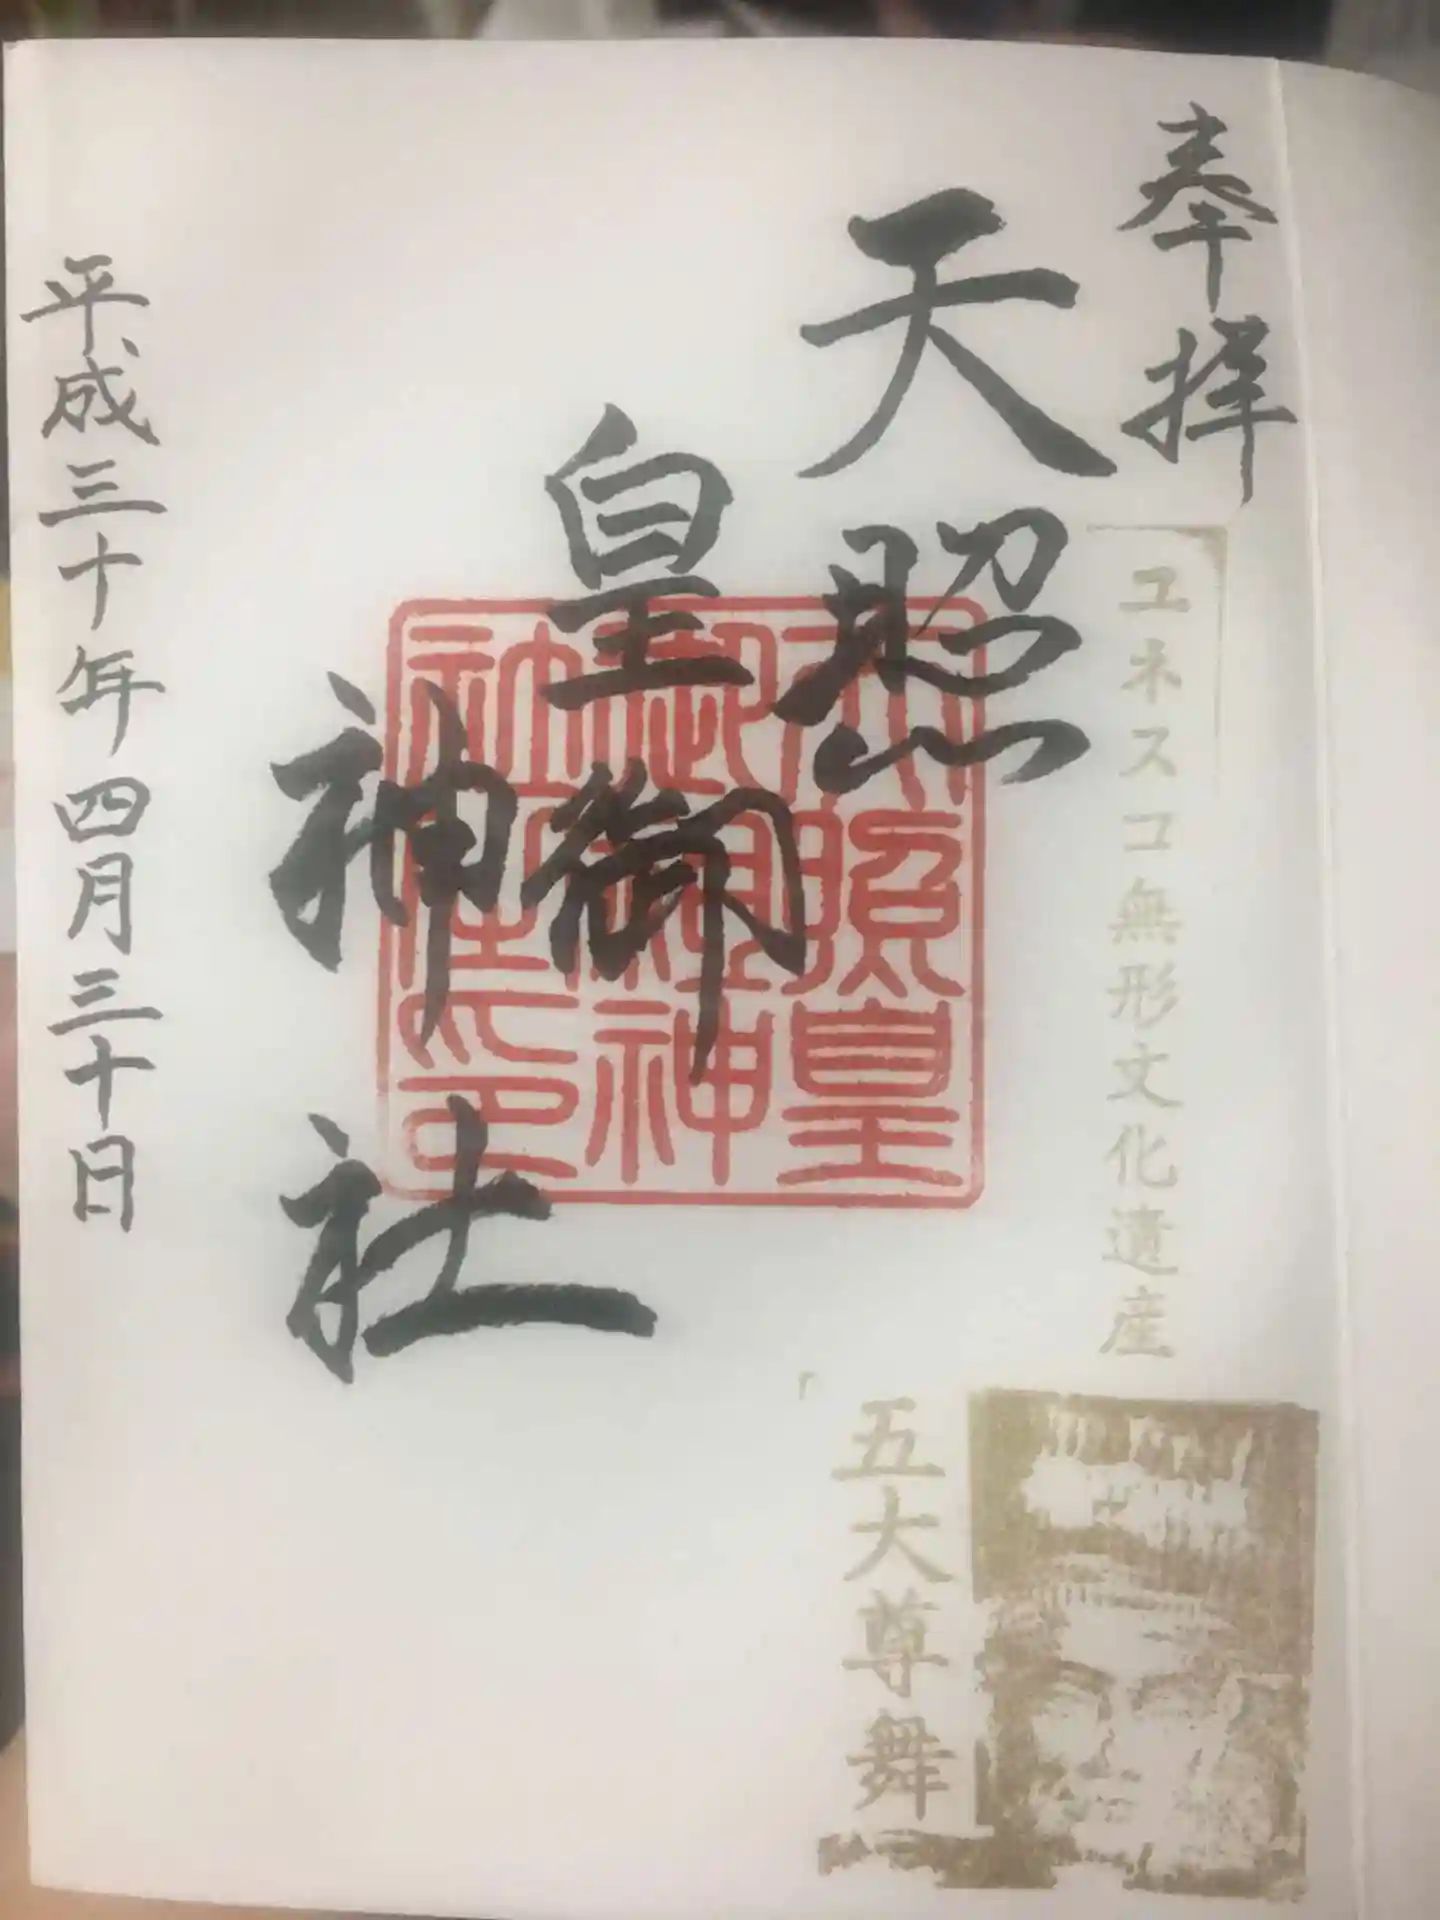 奉拝
ユネスコ無形文化遺産
五大尊舞
天照
皇御
神社
平成三十年四月三十日
天照皇